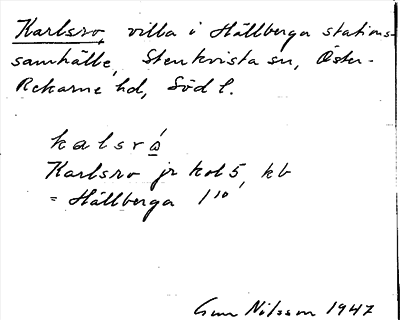 Karlsro, villa i Hällberga stations-
samhälle, Stenkvista sn, Öster-
Rekarne hd, Södl.
kalsró
Karlsro jr kol 5, kb
= Hällberga 1¹⁰
Gun Nilsson 1947